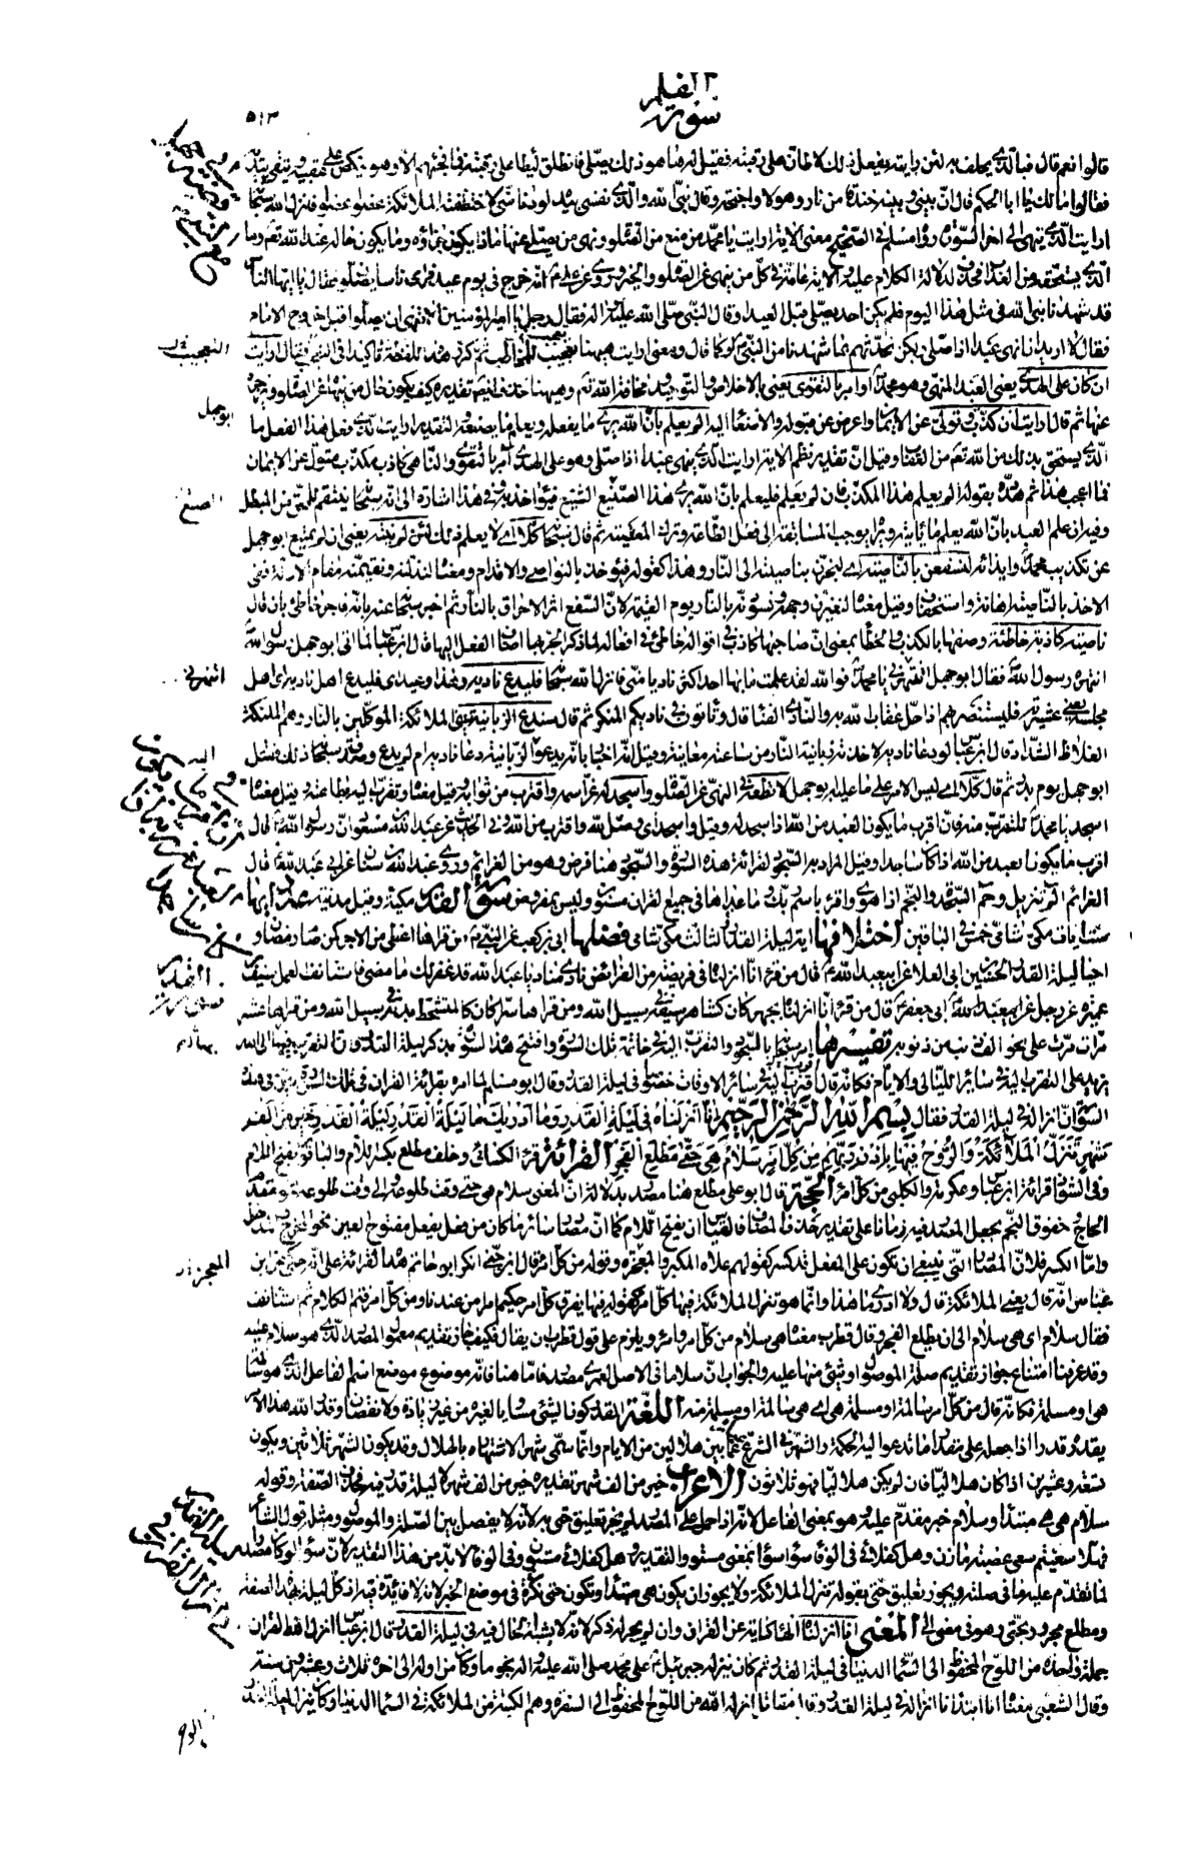 القلم
سورة
٥١٣
قالوا نعم قال فبالذي يحلف به لئن رايته يفعل ذلك لاطان على رقبته فقيل له ها هو ذلك يصلي فانطلق ليطا على رقبته فما فجئهم الا وهو ينكص على عقبيه ويتقي بيديه
فقالوا مالك يا ابا الحكم قال ان بيني وبينه خندقا من نار وهولا واجنحة وقال نبي الله والذي نفسي بيده لو دنا مني لاختطفته الملائكة عضوا عضوا فانزل الله سبحانه
ارايت الذي ينهى الى اخر السورة رواه مسلم في الصحيح معنى الاية ارايت يا محمد من منع من الصلوة ونهى من يصلي عنها ماذا يكون جزاؤه وما يكون حاله عند الله تعالى وما
الذي يستحقه من العذاب فحذف لدلالة الكلام عليه والاية عامة في كل من ينهى عن الصلوة والخير وروي عن علي انه خرج في يوم عيد فراى ناسا يصلون فقال يا ايها الناس
قد شهدنا نبي الله في مثل هذا اليوم فلم يكن احد يصلي قبل العيد او قال النبي صلى الله عليه واله فقال رجل يا امير المؤمنين الا تنهى ان يصلوا قبل خروج الامام
فقال لا اريد ان انهى عبدا اذا صلى ولكن نحدثهم بما شهدنا من النبي او كما قال ومعنى ارايت ههنا تعجيب للمخاطب ثم كرر هذه اللفظة تاكيدا في التعجيب فقال ارايت
ان كان على الهدى يعني العبد المنهي وهو محمد او امر بالتقوى يعني بالاخلاص والتوحيد ومخافة الله تعالى وههنا حذف ايضا تقديره كيف يكون حال من ينهاه عن الصلوة ويزجره
عنها ثم قال ارايت ان كذب وتولى عن الايمان واعرض عن قبوله والاصغاء اليه الم يعلم بان الله يرى ما يفعله ويعلم ما يصنعه والتقدير ارايت الذي فعل هذا الفعل ما
الذي يستحق بذلك من الله تعالى من العقاب وقيل ان تقدير نظم الاية ارايت الذي ينهى عبدا اذا صلى وهو على الهدى امر بالتقوى والناهي كاذب مكذب متول عن الايمان
فما اعجب هذا ثم هدده بقوله الم يعلم هذا المكذب فان لم يعلم فليعلم بان الله يرى هذا الصنيع الشنيع فيؤاخذه به وفي هذا اشارة الى انه سبحانه ينتقم للمحق من المبطل
وفيه ان علم العبد بان الله يعلم ما ياتيه ويذره يوجب المسابقة الى فعل الطاعة وترك المعصية ثم قال سبحانه كلا اي لا يعلم ذلك لئن لم ينته يعني ان لم يمتنع ابو جهل
عن تكذيب محمد وايذائه لنسفعن بالناصية اي لنجرن بناصيته الى النار وهذا كقوله فيؤخذ بالنواصي والاقدام ومعناه لنذلنه ونقيمنه مقام الاذلة ففي
الاخذ بالناصية اهانة واستخفاف وقيل معناه لنغيرن وجهه ونسودنه بالنار يوم القيمة لان السفع اثر الاحراق بالنار ثم اخبر سبحانه عنه بانه فاجر خاطئ بان قال
ناصية كاذبة خاطئة وصفها بالكذب والخطا بمعنى ان صاحبها كاذب في اقواله خاطئ في افعاله لما ذكر الجر بها اضاف الفعل اليها قال ابن عباس لما اتى ابو جهل رسول الله
انتهره رسول الله فقال ابو جهل اتنهرني يا محمد فوالله لقد علمت ما بها احد اكثر ناديا مني فانزل الله سبحانه فليدع ناديه وهذا وعيد اي فليدع اهل ناديه اي اهل
مجلسه يعني عشيرته فليستنصر بهم اذا حل عقاب الله به والنادي الفناء قال وتاتون في ناديكم المنكر ثم قال سندع الزبانية يعني الملائكة الموكلين بالنار وهم الملائكة
الغلاظ الشداد قال ابن عباس لو دعا ناديه لاخذته زبانية النار من ساعته معاينة وقيل انه اخبار بانه يدعو الزبانية دعا ناديه ام لم يدع وصدق سبحانه ذلك فقتل
ابو جهل يوم بدر ثم قال كلا اي ليس الامر على ما عليه ابو جهل لا تطعه في النهي عن الصلوة واسجد له عز اسمه واقترب من ثوابه وقيل معناه وتقرب اليه بطاعته وقيل معناه
اسجد يا محمد لتتقرب منه فان اقرب ما يكون العبد من الله اذا سجد له وقيل واسجد اي وصل لله واقترب من الله وفي الحديث عن عبد الله بن مسعود ان رسول الله قال
اقرب ما يكون العبد من الله اذا كان ساجدا وقيل المراد به السجود لقرائة هذه السورة والسجود هنا فرض وهو من العزائم وروي عبد الله بن سنان عن ابي عبد الله قال
العزائم الم تنزيل وحم السجدة والنجم اذا هوى واقرا باسم ربك وما عداها في جميع القران مسنون وليس بمفروض سورة القدر مكية وقيل مدنية عدد ايها
ست ايات مكي شامي خمس في الباقين اختلافها اية ليلة القدر الثالث مكي شامي فضلها ابي بن كعب عن النبي من قراها اعطي من الاجر كمن صام رمضان و
احيا ليلة القدر الحسين بن ابي العلاء عن ابي عبد الله قال من قرا انا انزلناه في فريضة من الفرائض نادى مناد يا عبد الله قد غفر لك ما مضى فاستانف العمل سيف
عميرة عن رجل عن ابي جعفر قال من قرا انا انزلناه بجهر كان كشاهر سيفه في سبيل الله ومن قراها سرا كان كالمتشحط بدمه في سبيل الله ومن قراها عشر
مرات مرت على نحو الف ذنب من ذنوبه تفسيرها امر سبحانه بالسجود والتقرب اليه في خاتمة تلك السورة وافتتح هذه السورة بذكر ليلة القدر وان التقرب فيها الى الله
يزيد على التقرب اليه في سائر الليالي والايام فكانه قال اقترب اليه في سائر الاوقات خصوصا في ليلة القدر وقال ابو مسلم لما امره بقرائة القران في تلك السورة بين في هذه
السورة ان انزاله في ليلة القدر فقال بسم الله الرحمن الرحيم انا انزلناه في ليلة القدر وما ادريك ما ليلة القدر ليلة القدر خير من الف
شهر تنزل الملائكة والروح فيها باذن ربهم من كل امر سلام هي حتى مطلع الفجر القرائة قرا الكسائي وخلف مطلع بكسر اللام والباقون بفتح اللام
وفي الشواذ قرائة ابن عباس وعكرمة والكلبي من كل امرئ الحجة قال ابو علي مطلع هنا مصدر بدلالة ان المعنى سلام هي حتى وقت طلوعه والى وقت طلوعه نحو مقدم
الحاج وخفوق النجم يجعل المصدر فيه زمانا على تقدير حذف المضاف فالقياس ان يفتح اللام كما ان مصادر سائر ما كان من فعل يفعل مفتوح العين نحو المخرج المدخل
واما الكسر فلان من المصادر التي ينبغي ان تكون على المفعل قد كسر كقولهم علاه المكبر والمعجزة وقوله من كل امرئ قال ابن جني انكر ابو حاتم هذه القرائة على انه حكى عن ابن
عباس انه قال يعني الملائكة قال ولا ادري ما هذا وانما هو تنزل الملائكة فيها كل امر كقوله فيها يفرق كل امر حكيم امرا من عندنا ومن كل امر فتم الكلام ثم استانف
فقال سلام اي هي سلام الى ان يطلع الفجر وقال قطرب معناه هي سلام من كل امر وامرئ ويلزم على قول قطرب ان يقال فكيف جاز تقديم معمول المصدر الذي هو سلام عليه
وقد عرفنا امتناع جواز تقديم صلة الموصول او شيء منها عليه والجواب ان سلاما في الاصل لعمري مصدر فاما هنا فانه موضوع موضع اسم الفاعل الذي هو سالمة
هي او مسلمة فكانه قال من كل امر سالمة او مسلمة هي اي هي سالمة او مسلمة منه اللغة القدر كون الشيء مساويا لغيره من غير زيادة ولا نقصان وقدر الله هذا الامر
يقدره قدرا اذا جعله على مقدار ما تدعو اليه الحكمة والشهر في الشرع عبارة عما بين هلالين من الايام وانما سمي شهرا لاشتهاره بالهلال وقد يكون الشهر ثلاثين ويكون
تسعة وعشرين اذا كان هلاليا فان لم يكن هلاليا فهو ثلاثون الاعراب خير من الف شهر تقديره خير من الف شهر لا ليلة قدر فيه فحذف الصفة وقوله
سلام هي هي مبتدا وسلام خبر مقدم عليه وهو بمعنى الفاعل لانه اذا حمل على المصدر لم يجز تعليق حتى به لانه لا يفصل بين الصلة والموصول ومثله قول الشاعر
فهلا سعيتم سعي عصبة مازن وهل كفلائي في الوفاء سواء سواء بمعنى مستوون والتقدير وهل كفلائي مستوون في الوفاء لا بد من هذا التقدير لان سواء لو كان مصدرا
لما تقدم عليه ما في صلته ويجوز تعليق حتى بقوله تنزل الملائكة ولا يجوز ان يكون هي مبتدا وتكون حتى في موضع الخبر لانه لا فائدة فيه اذ كل ليلة بهذه الصفة
ومطلع مجرور بحتى وهو في معنى الى المعنى انا انزلناه الهاء كناية عن القران وان لم يجر له ذكر لانه لا يشتبه الحال فيه في ليلة القدر قال ابن عباس انزل الله القران
جملة واحدة من اللوح المحفوظ الى السماء الدنيا في ليلة القدر ثم كان ينزله جبرئيل على محمد صلى الله عليه واله نجوما وكان من اوله الى اخره ثلاث وعشرون سنة
وقال الشعبي معناه انا ابتدانا انزاله في ليلة القدر وقال مقاتل انزله الله من اللوح المحفوظ الى السفرة وهم الكتبة من الملائكة في السماء الدنيا وكان ينزل ليلة القدر
التعجيب
ابوجهل
الصنيع
انتهرني
القدر
المعجزة